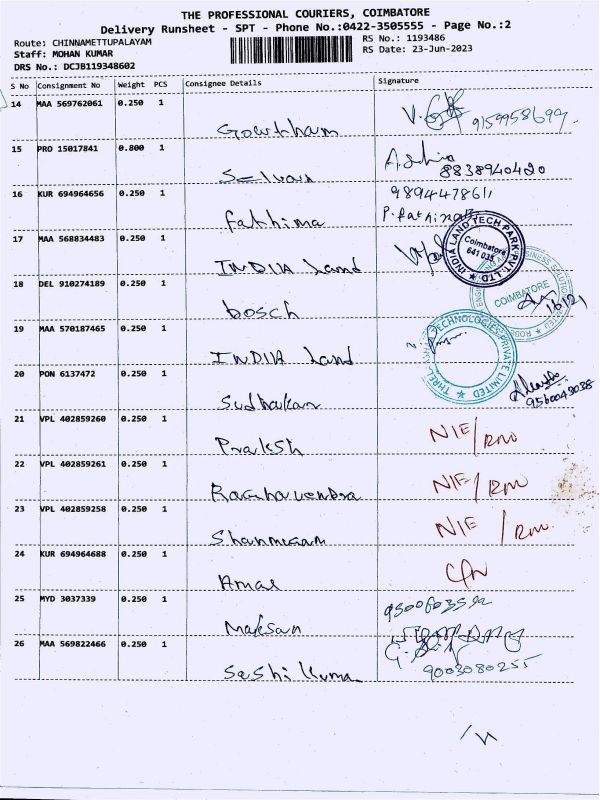 THE PROFESSIONAL COURIERS, COIMBATORE
Delivery Runsheet - SPT - Phone No.:0422-3505555 - Page No.:2
Route: CHINNAMETTUPALAYAM
RS No.: 1193486
Staff: MOHAN KUMAR
RS Date: 23-Jun-2023
DRS No.: DCJB119348602
S No Consignment No Weight PCS Consignee Details Signature
14 MAA 569762061 0.250 1
Gowtham
15 PRO 15017841 0.800 1
Selvan 8838940420
16 KUR 694964656 0.250 1 9894447861
Fathima P. Fathima
17 MAA 568834483 0.250 1
INDIA Land
INDIA LAND TECH PARK PVT. LTD
Coimbatore
641 035
18 DEL 910274189 0.250 1
bosch
COIMBATORE
19 MAA 570187465 0.250 1
INDIA Land
TECHNOLOGIES PRIVATE LIMITED
20 PON 6137472 0.250 1
Sudhakar 9560049038
21 VPL 402859260 0.250 1
Prakash NIE/RNO
22 VPL 402859261 0.250 1
Raghavendra NIE/
23 VPL 402859258 0.250 1
Shanmugam NIE/
24 KUR 694964688 0.250 1
Amal
25 MYD 3037339 0.250 1
Maksan
26 MAA 569822466 0.250 1
Sashikuma 9003080255